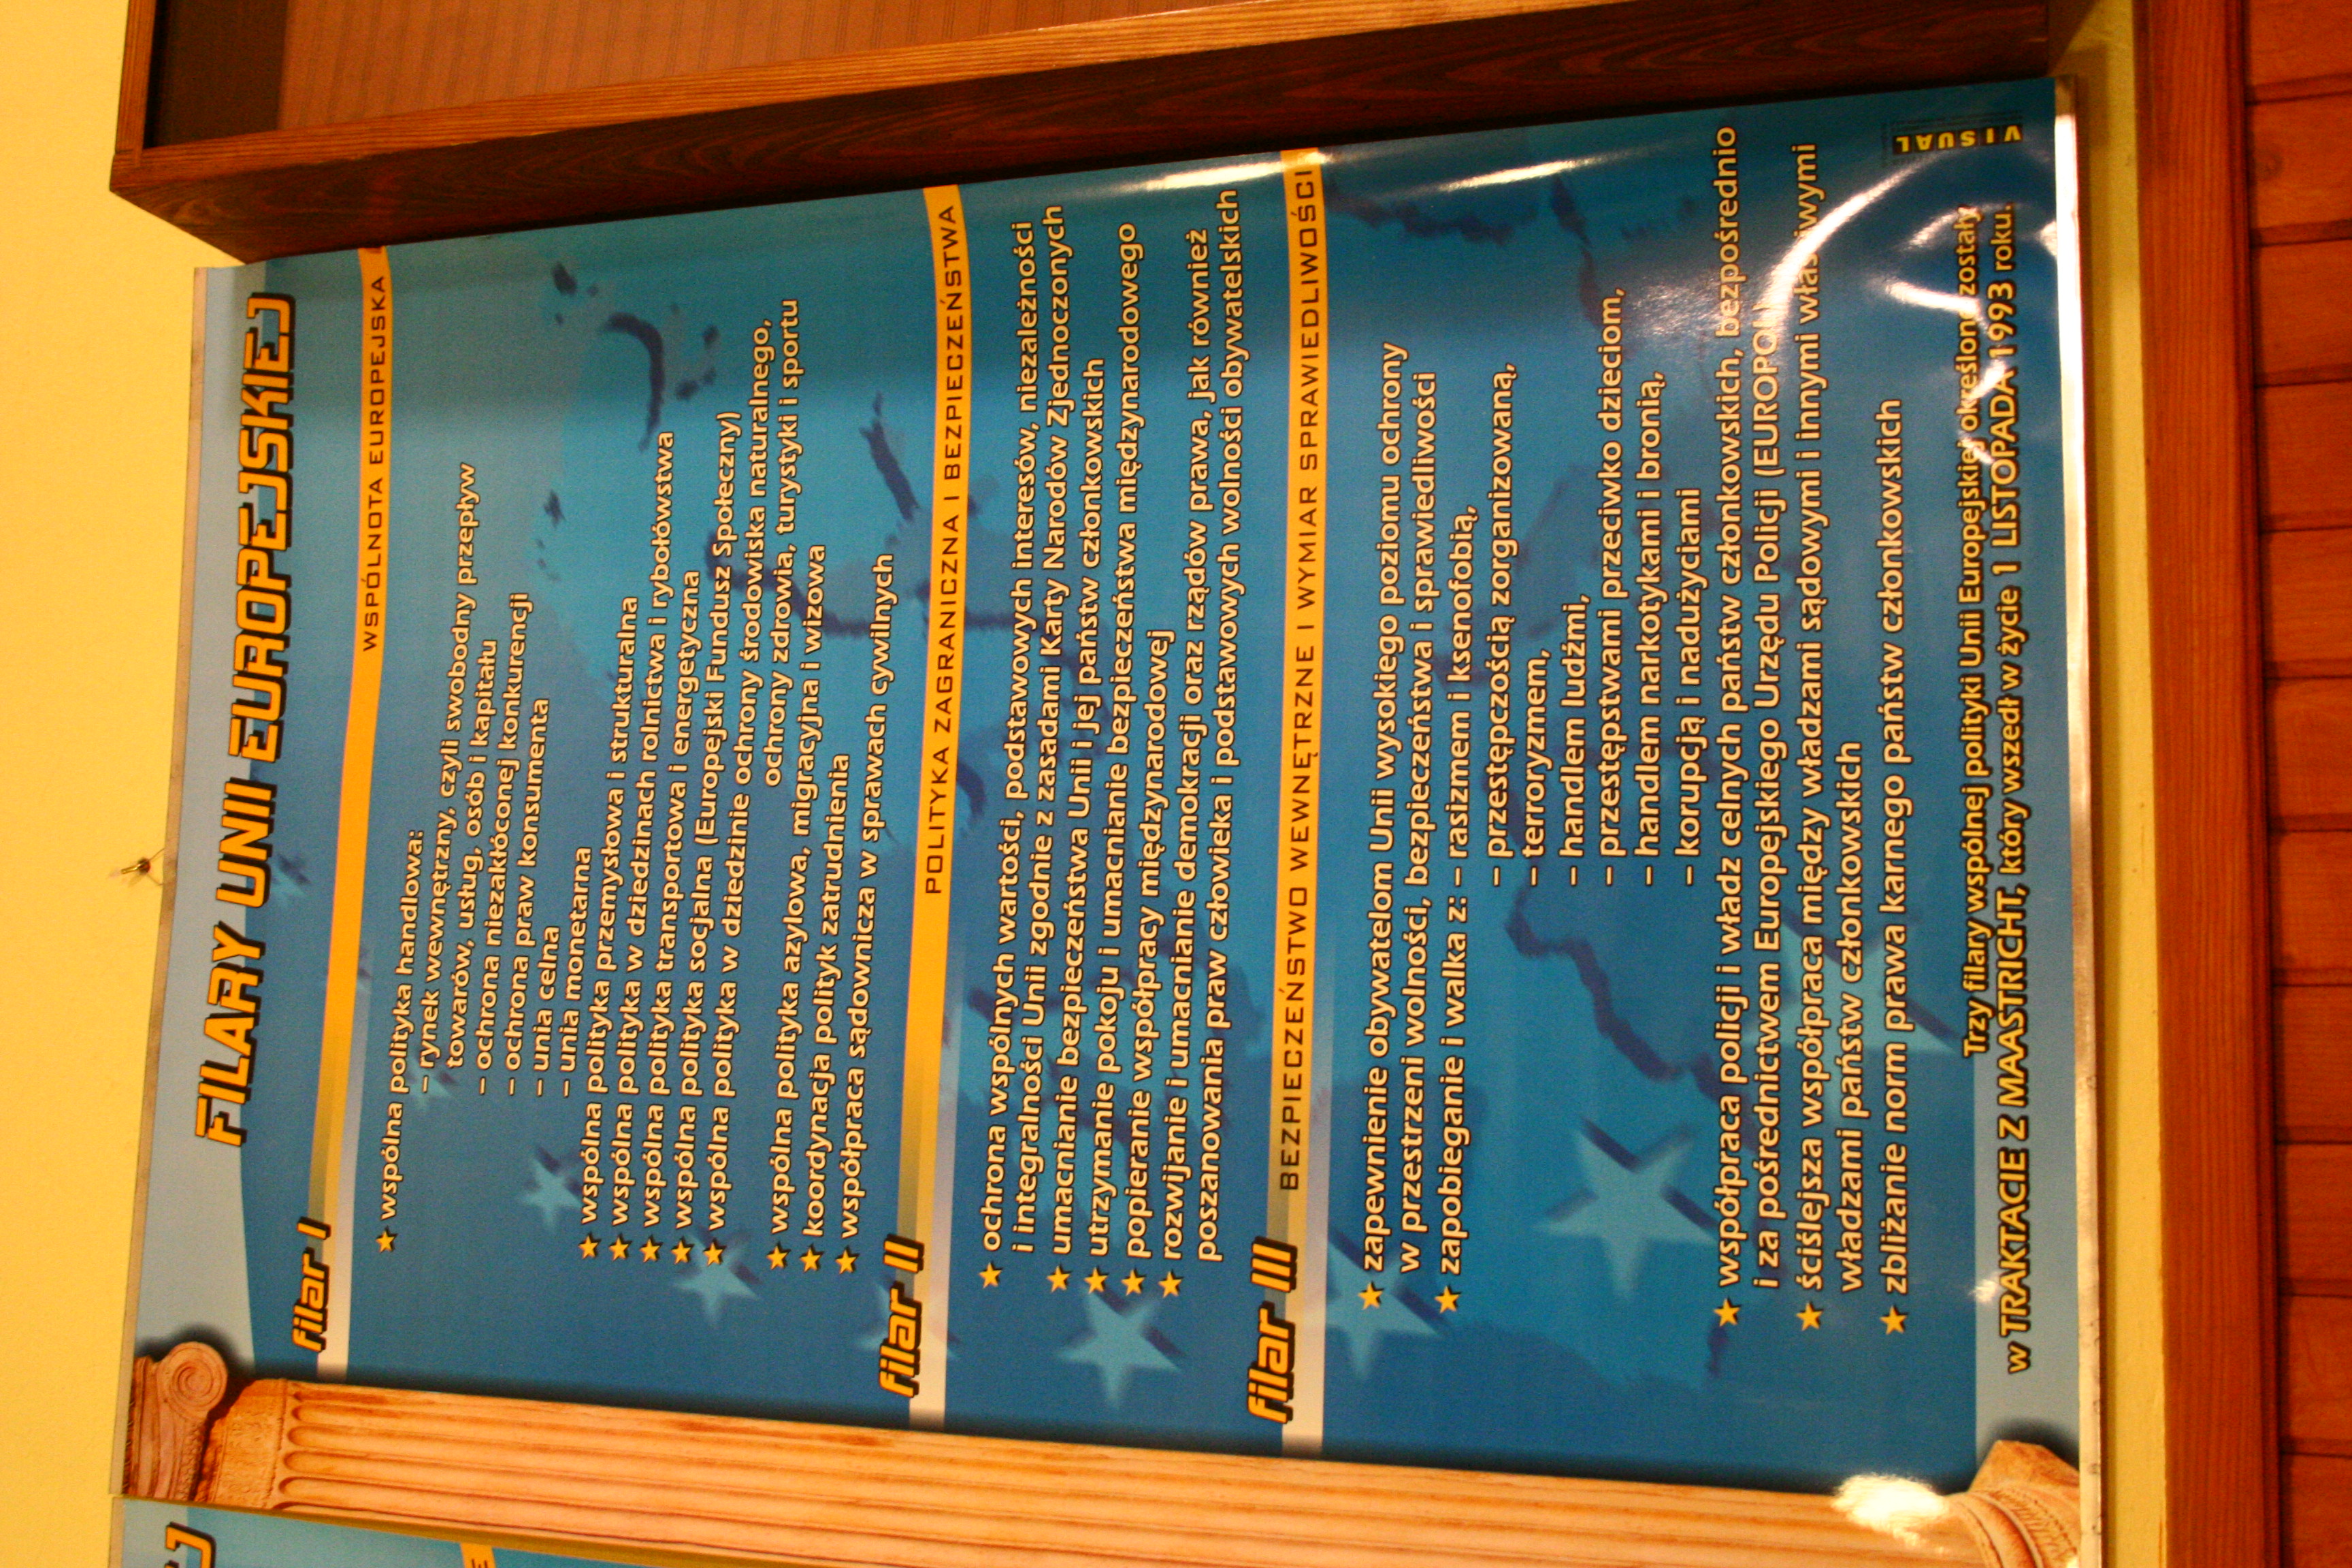 FILARY UNII EUROPEJSKIEJ
filar I
WSPÓLNOTA EUROPEJSKA
★ wspólna polityka handlowa:
– rynek wewnętrzny, czyli swobodny przepływ
towarów, usług, osób i kapitału
– ochrona niezakłóconej konkurencji
– ochrona praw konsumenta
– unia celna
– unia monetarna
★ wspólna polityka przemysłowa i strukturalna
★ wspólna polityka w dziedzinach rolnictwa i rybołówstwa
★ wspólna polityka transportowa i energetyczna
★ wspólna polityka socjalna (Europejski Fundusz Społeczny)
★ wspólna polityka w dziedzinie ochrony środowiska naturalnego,
ochrony zdrowia, turystyki i sportu
★ wspólna polityka azylowa, migracyjna i wizowa
★ koordynacja polityk zatrudnienia
★ współpraca sądownicza w sprawach cywilnych
filar II
POLITYKA ZAGRANICZNA I BEZPIECZEŃSTWA
★ ochrona wspólnych wartości, podstawowych interesów, niezależności
i integralności Unii zgodnie z zasadami Karty Narodów Zjednoczonych
★ umacnianie bezpieczeństwa Unii i jej państw członkowskich
★ utrzymanie pokoju i umacnianie bezpieczeństwa międzynarodowego
★ popieranie współpracy międzynarodowej
★ rozwijanie i umacnianie demokracji oraz rządów prawa, jak również
poszanowania praw człowieka i podstawowych wolności obywatelskich
filar III
BEZPIECZEŃSTWO WEWNĘTRZNE I WYMIAR SPRAWIEDLIWOŚCI
★ zapewnienie obywatelom Unii wysokiego poziomu ochrony
w przestrzeni wolności, bezpieczeństwa i sprawiedliwości
★ zapobieganie i walka z: – rasizmem i ksenofobią,
– przestępczością zorganizowaną,
– terroryzmem,
– handlem ludźmi,
– przestępstwami przeciwko dzieciom,
– handlem narkotykami i bronią,
– korupcją i nadużyciami
★ współpraca policji i władz celnych państw członkowskich, bezpośrednio
i za pośrednictwem Europejskiego Urzędu Policji (EUROPOL)
★ ściślejsza współpraca między władzami sądowymi i innymi właściwymi
władzami państw członkowskich
★ zbliżanie norm prawa karnego państw członkowskich
Trzy filary wspólnej polityki Unii Europejskiej określone zostały
w TRAKTACIE Z MAASTRICHT, który wszedł w życie 1 LISTOPADA 1993 roku.
VISUAL